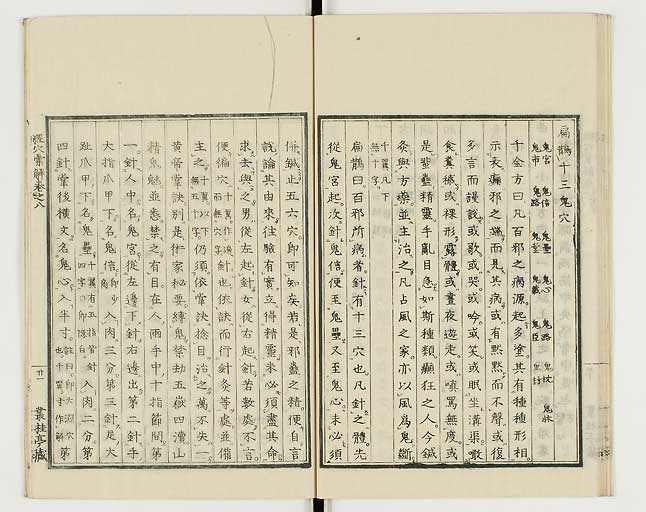 扁鵲十三鬼穴
鬼宮 鬼信 鬼壘 鬼心 鬼路 鬼枕 鬼牀
鬼市 鬼路 鬼堂 鬼藏 鬼臣 鬼封
千金方曰凡百邪之病源起多塗其有種種形相
示表癲邪之端而見其病或有默默而不聲或復
多言而謾說或歌或哭或吟或笑或眠坐溝渠噉
食糞穢或裸形露體或晝夜遊走或嗔罵無度或
是蜚蠱精靈手亂目急如斯種類癲狂之人今鍼
灸與方藥並主治之凡占風之家亦以風為鬼斷
千翼凡下
無十字
扁鵲曰百邪所病者針有十三穴也凡針之體先
從鬼宮起次針鬼信便至鬼壘又至鬼心未必須
併鍼止五六穴即可知矣若是邪蠱之精便自言
說論其由來往驗有實立得精靈未必須盡其命
求去與之男從左起針女從右起針若數處不言
便偏穴針也依訣而行針灸等處並備
主之仍須依掌訣捻目治之萬不失一
黃帝掌訣別是術家秘要縛鬼禁劾五嶽四瀆山
精鬼魅並悉禁之有目在人兩手中十指節間第
一針人中名鬼宮從左邊下針右邊出第二針手
大指爪甲下名鬼信入肉三分第三針足大
趾爪甲下名鬼壘入肉二分第
四針掌後橫文名鬼心入半寸第
經穴彙解卷之八
廿
叢桂亭藏